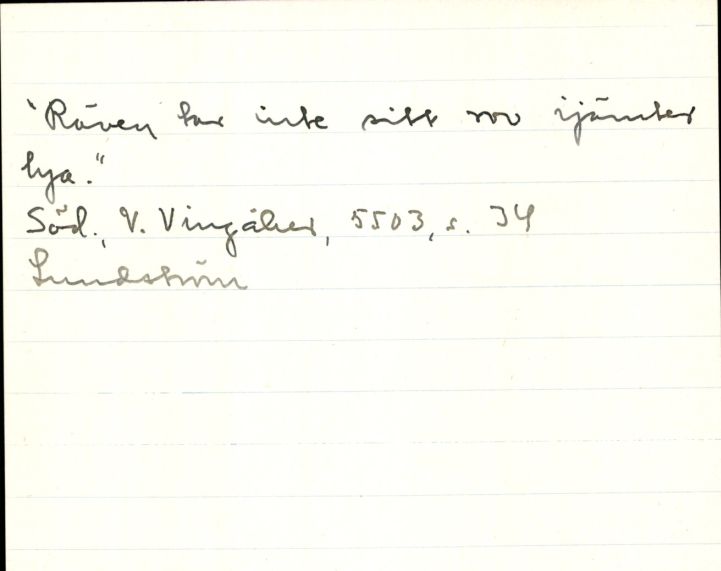 "Räven tar inte sitt rov ijämter
lya."
Söd., V. Vingåker, 5503, s. 34
Lundström